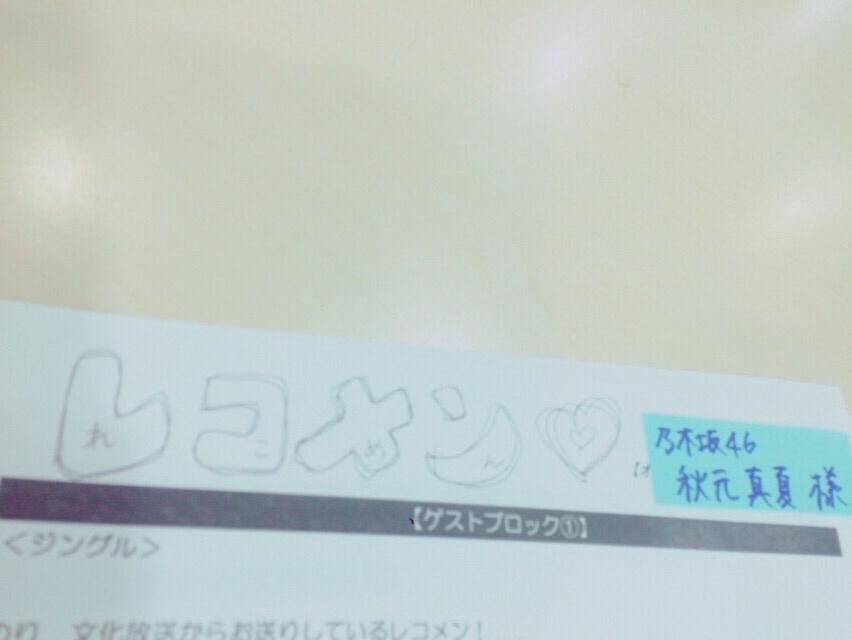 レコメン♡
れこめん
乃木坂46
秋元真夏 様
【ゲストブロック①】
＜ジングル＞
文化放送からお送りしているレコメン！